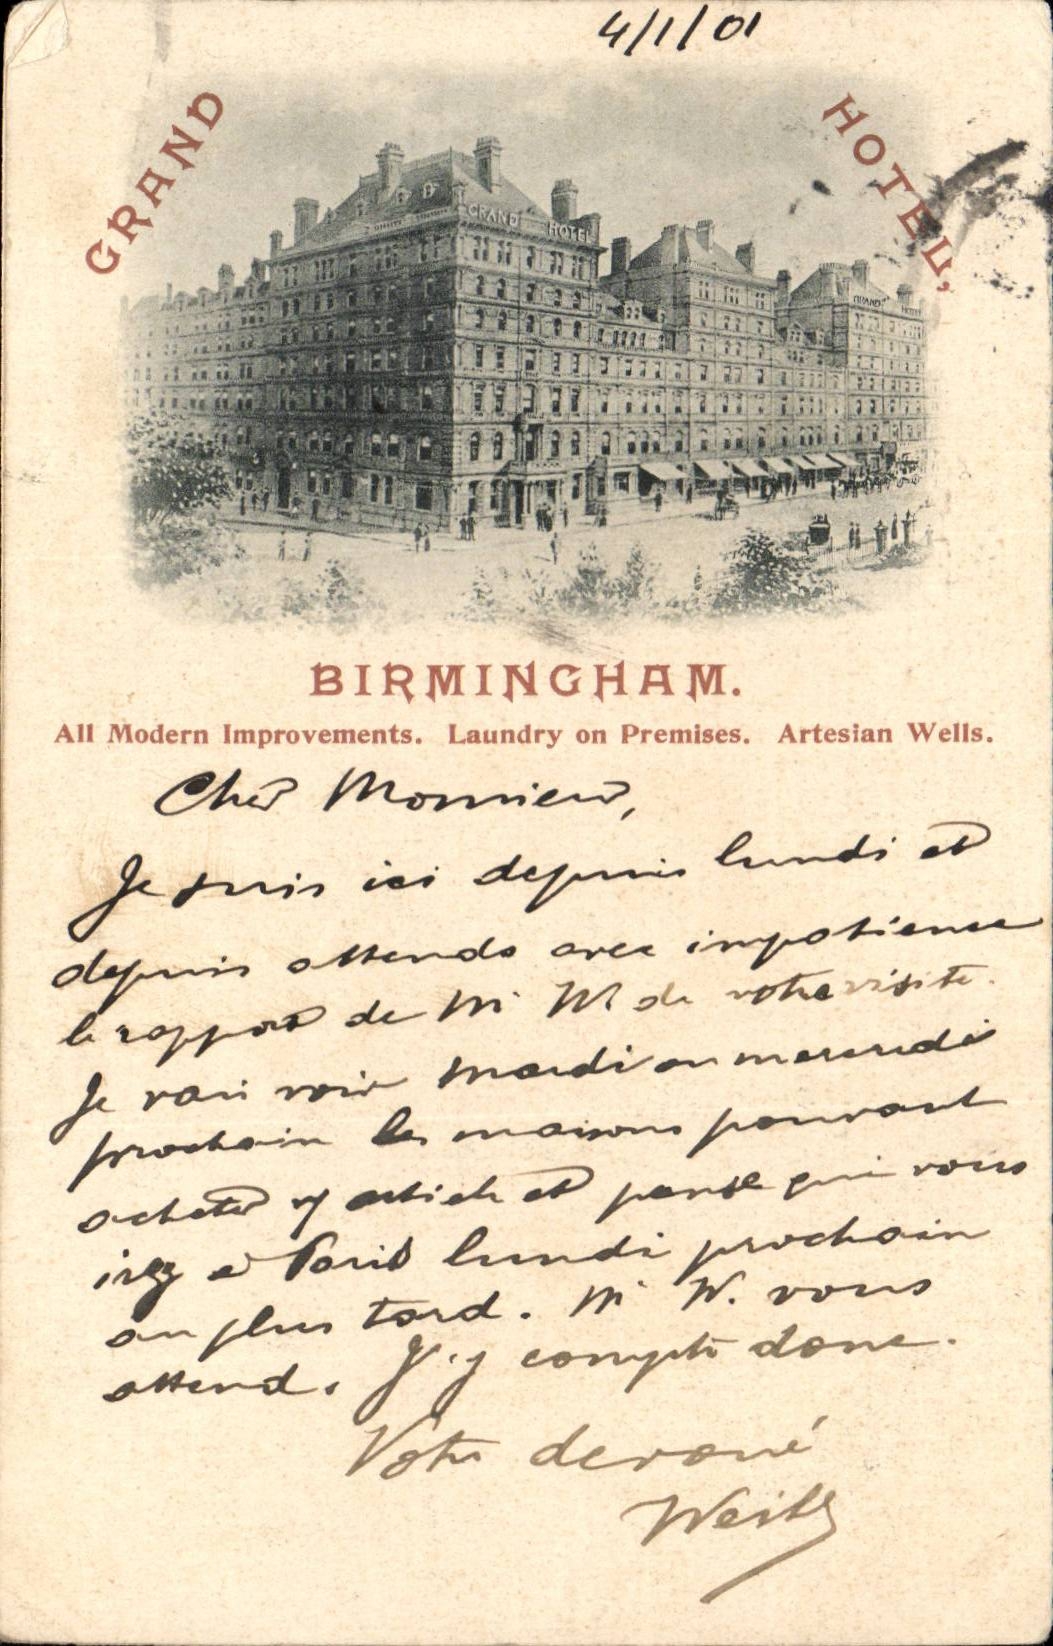 4/1/01
GRAND HOTEL,
GRAND HOTEL
GRAND HOTEL
BIRMINGHAM.
All Modern Improvements. Laundry on Premises. Artesian Wells.
Cher Monsieur,
Je suis ici depuis lundi et
depuis attends avec impatience
le rapport de Mr W de votre visite.
Je vais voir mardi ou mercredi
prochain les maisons pouvant
acheter et pense que vous
irez à Paris lundi prochain
au plus tard. Mr W. vous
attend. J'y compte donc.
Votre dévoué